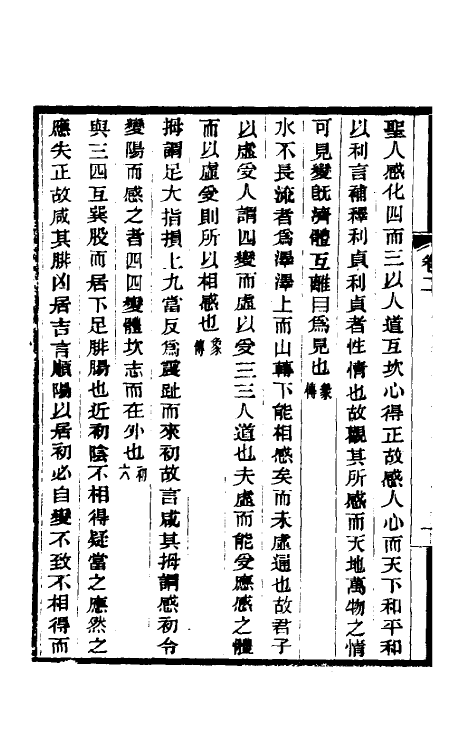 聖人感化四而三以人道互坎心得正故感人心而天下和平和
以利言補釋利貞利貞者性情也故觀其所感而天地萬物之情
可見變旣濟體互離目爲見也彖傳
水不長流者爲澤澤上而山轉下能相感矣而未虛通也故君子
以虛受人謂四變而虛以受三三人道也夫虛而能受應感之體
而以虛受則所以相感也象傳
拇謂足大指損上九當反爲震趾而來初故言咸其拇謂感初令
變陽而感之者四四變體坎志而在外也初六
與三四互巽股而居下足腓腸也近初陰不相得疑當之應然之
應失正故咸其腓凶居吉言順陽以居初必自變不致不相得而